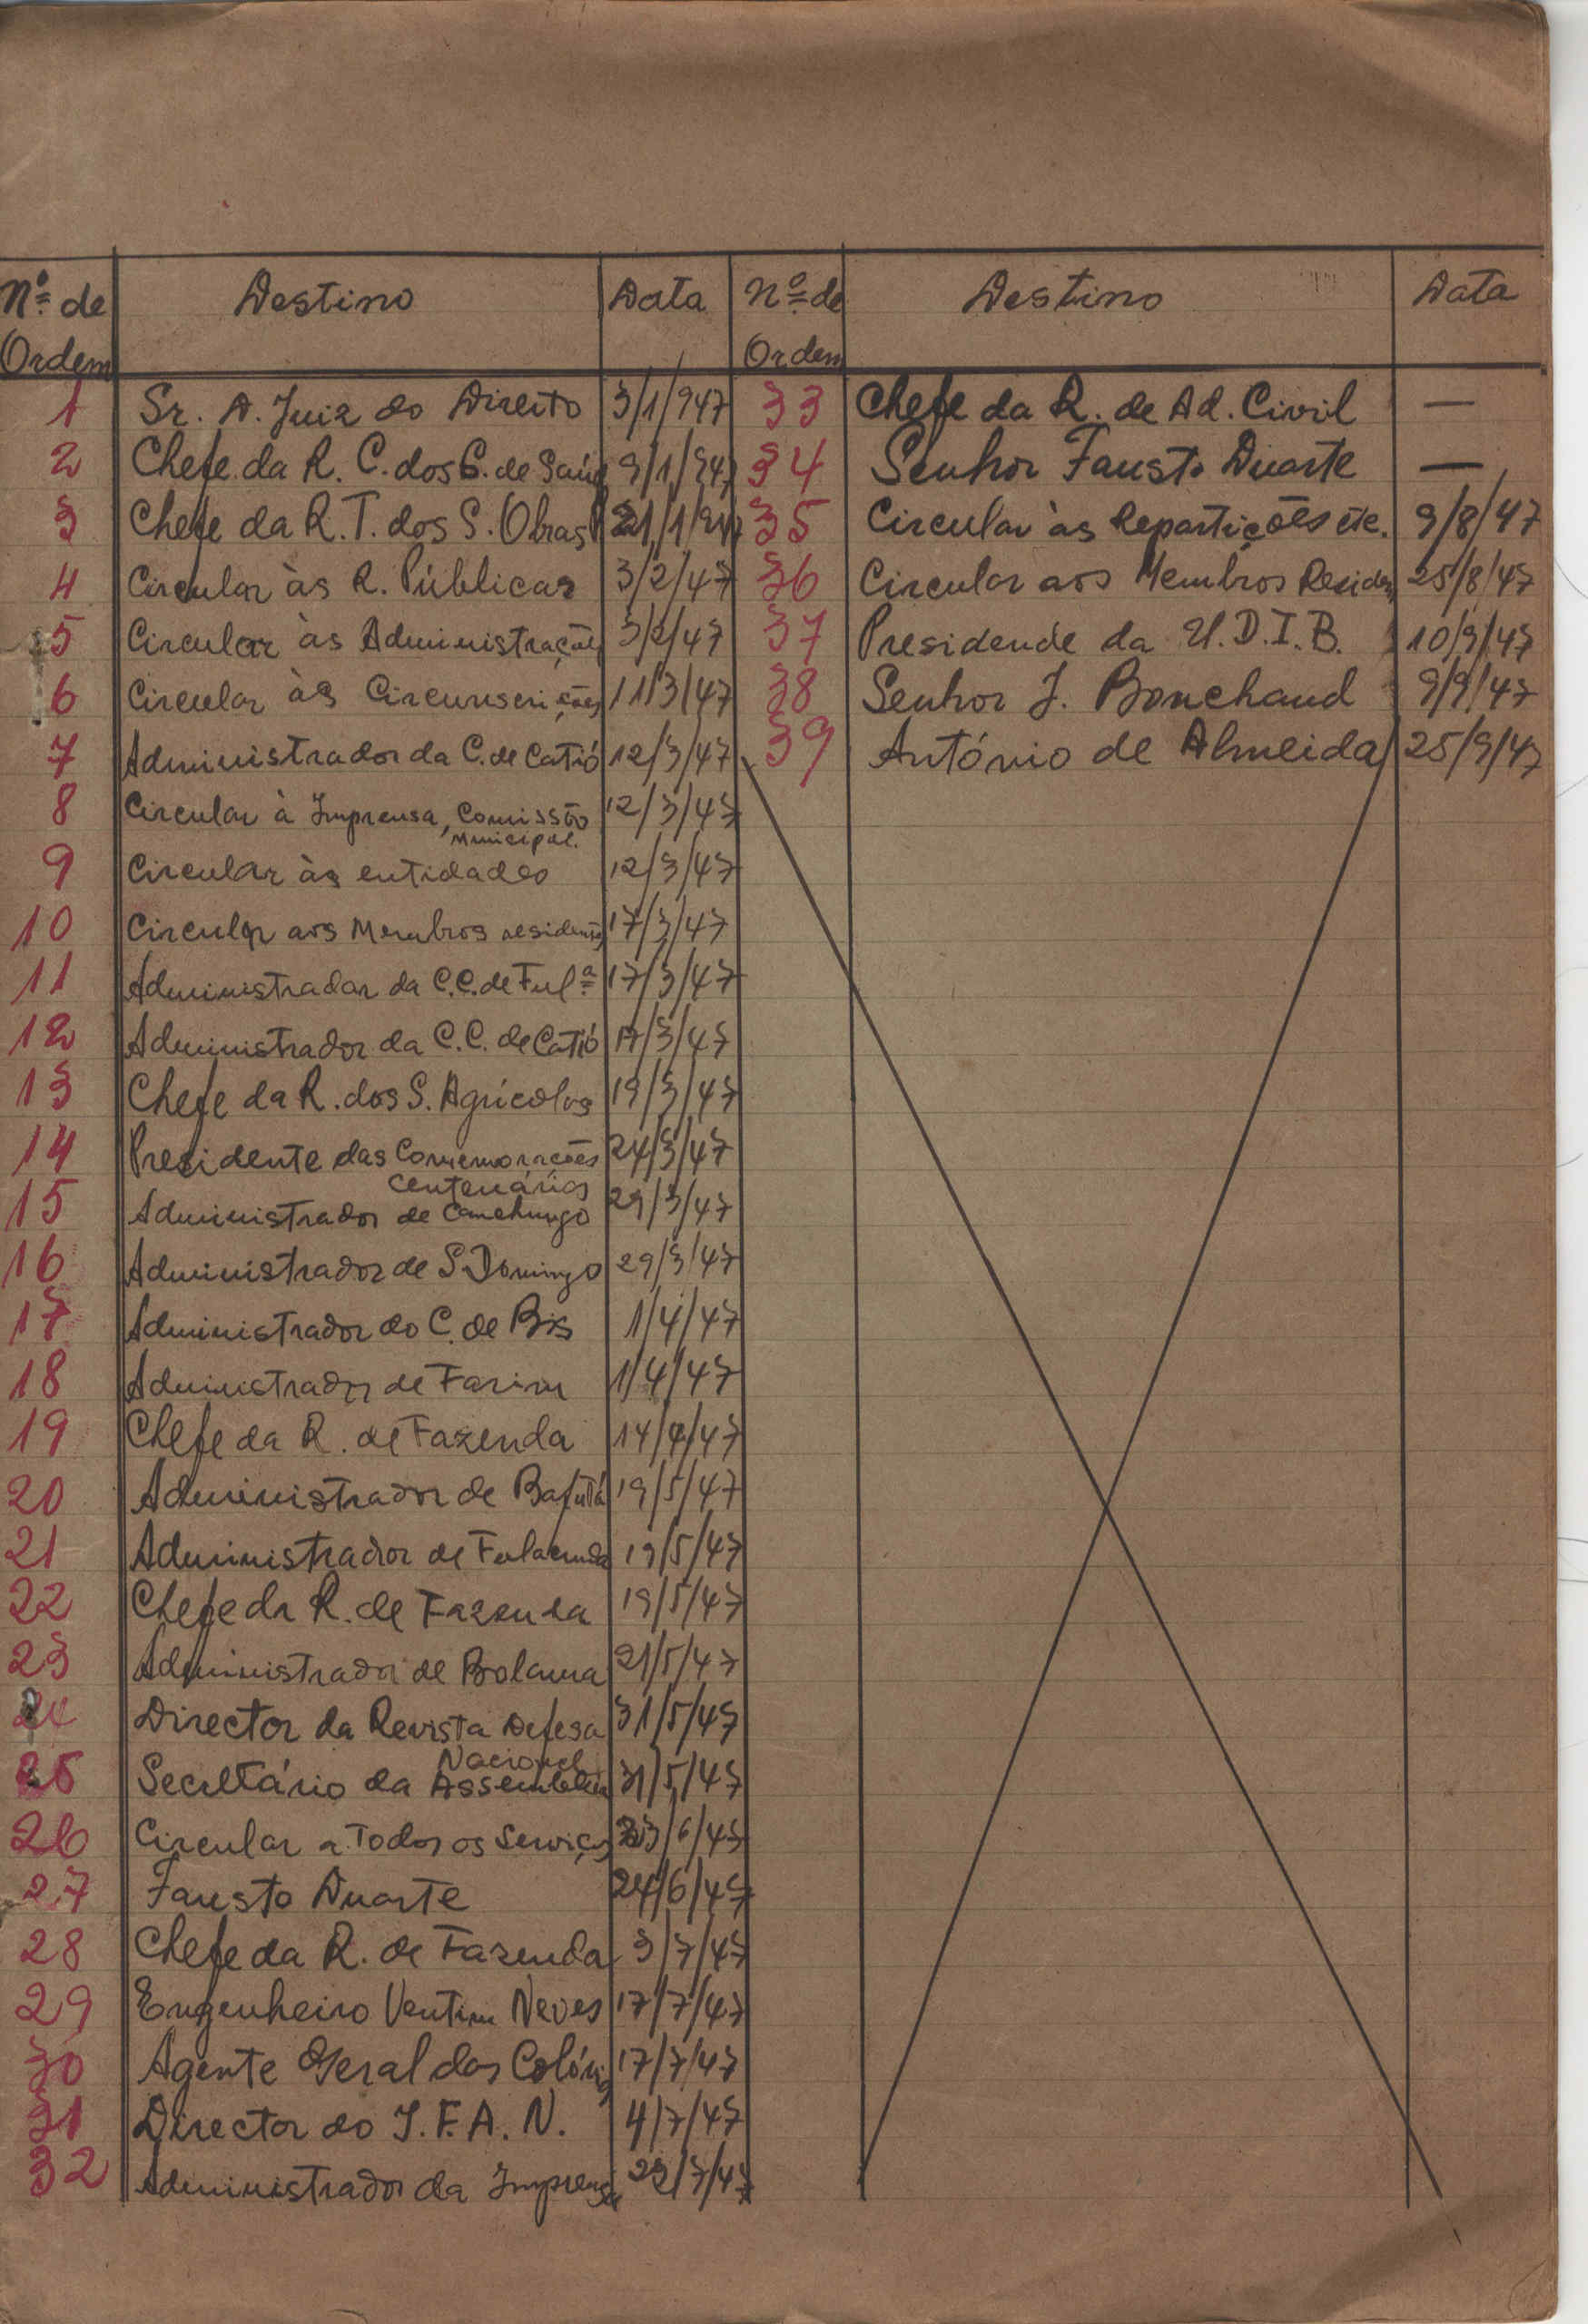 Nº de Ordem Destino Data Nº de Ordem Destino Data
1 Sr. D. Juiz do Direito 3/1/947
2 Chefe da R. C. dos S. de Saúde 9/1/947
3 Chefe da R. T. dos S. Obras P. 21/1/947
4 Circular às R. Públicas 3/2/47
5 Circular às Administrações 3/2/47
6 Circular às Circunscrições 11/3/47
7 Administrador da C. de Catió 12/3/47
8 Circular à Imprensa, Comissão 12/3/47
Municipal.
9 Circular às entidades 12/3/47
10 Circular aos Membros residentes 17/3/47
11 Administrador da C.C. de Fulª 17/3/47
12 Administrador da C.C. de Catió 17/3/47
13 Chefe da R. dos S. Agrícolas 19/3/47
14 Presidente das Comemorações 24/3/47
Centenárias
15 Administrador de Canchungo 29/3/47
16 Administrador de S. Domingo 29/3/47
17 Administrador do C. de Bis 1/4/47
18 Administrador de Farim 1/4/47
19 Chefe da R. de Fazenda 14/4/47
20 Administrador de Bafatá 19/5/47
21 Administrador de Fulacunda 19/5/47
22 Chefe da R. de Fazenda 19/5/47
23 Administrador de Bolama 21/5/47
24 Director da Revista Defesa 31/5/47
Nacional
25 Secretário da Assembleia 31/5/47
26 Circular a Todos os Serviços 23/6/47
27 Fausto Duarte 24/6/47
28 Chefe da R. de Fazenda 3/7/47
29 Engenheiro Ventim Neves 17/7/47
30 Agente Geral das Colónias 17/7/47
31 Director do I.F.A.N. 4/7/47
32 Administrador da Imprensa 29/7/47
33 Chefe da R. de Ad. Civil —
34 Senhor Fausto Duarte —
35 Circular às Repartições etc. 9/8/47
36 Circular aos Membros Residen 25/8/47
37 Presidende da U.D.I.B. 10/9/47
38 Senhor J. Bouchaud 9/9/47
39 António de Almeida 25/9/47